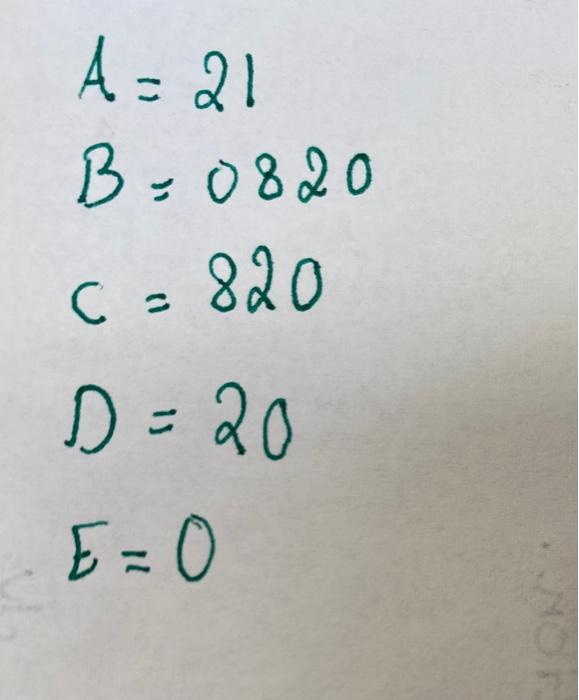 A = 21
B = 0820
C = 820
D = 20
E = 0